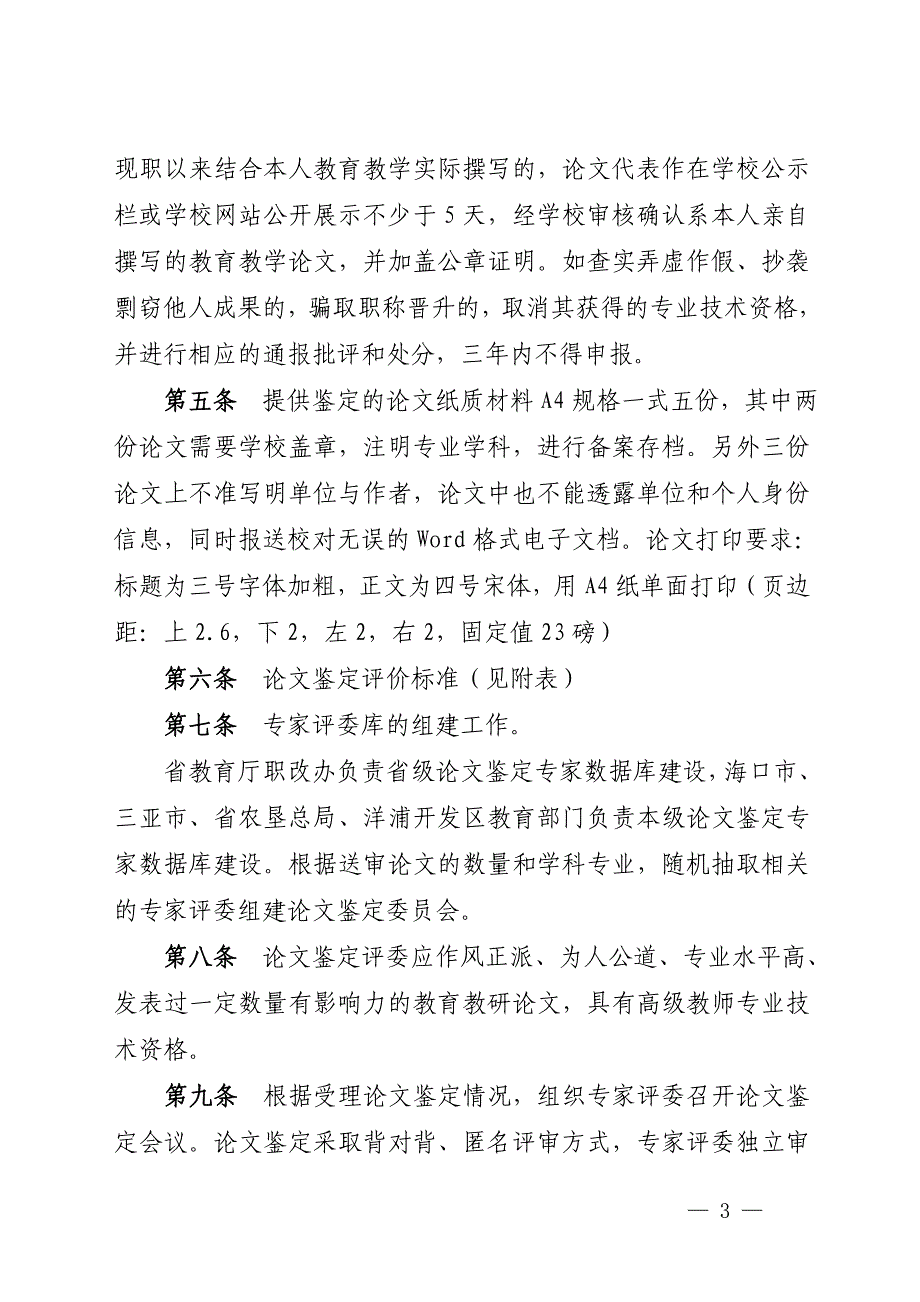 现职以来结合本人教育教学实际撰写的，论文代表作在学校公示
栏或学校网站公开展示不少于 5 天，经学校审核确认系本人亲自
撰写的教育教学论文，并加盖公章证明。如查实弄虚作假、抄袭
剽窃他人成果的，骗取职称晋升的，取消其获得的专业技术资格，
并进行相应的通报批评和处分，三年内不得申报。
第五条　提供鉴定的论文纸质材料 A4 规格一式五份，其中两
份论文需要学校盖章，注明专业学科，进行备案存档。另外三份
论文上不准写明单位与作者，论文中也不能透露单位和个人身份
信息，同时报送校对无误的 Word 格式电子文档。论文打印要求：
标题为三号字体加粗，正文为四号宋体，用 A4 纸单面打印（页边
距：上 2.6，下 2，左 2，右 2，固定值 23 磅）
第六条　论文鉴定评价标准（见附表）
第七条　专家评委库的组建工作。
省教育厅职改办负责省级论文鉴定专家数据库建设，海口市、
三亚市、省农垦总局、洋浦开发区教育部门负责本级论文鉴定专
家数据库建设。根据送审论文的数量和学科专业，随机抽取相关
的专家评委组建论文鉴定委员会。
第八条　论文鉴定评委应作风正派、为人公道、专业水平高、
发表过一定数量有影响力的教育教研论文，具有高级教师专业技
术资格。
第九条　根据受理论文鉴定情况，组织专家评委召开论文鉴
定会议。论文鉴定采取背对背、匿名评审方式，专家评委独立审
— 3 —